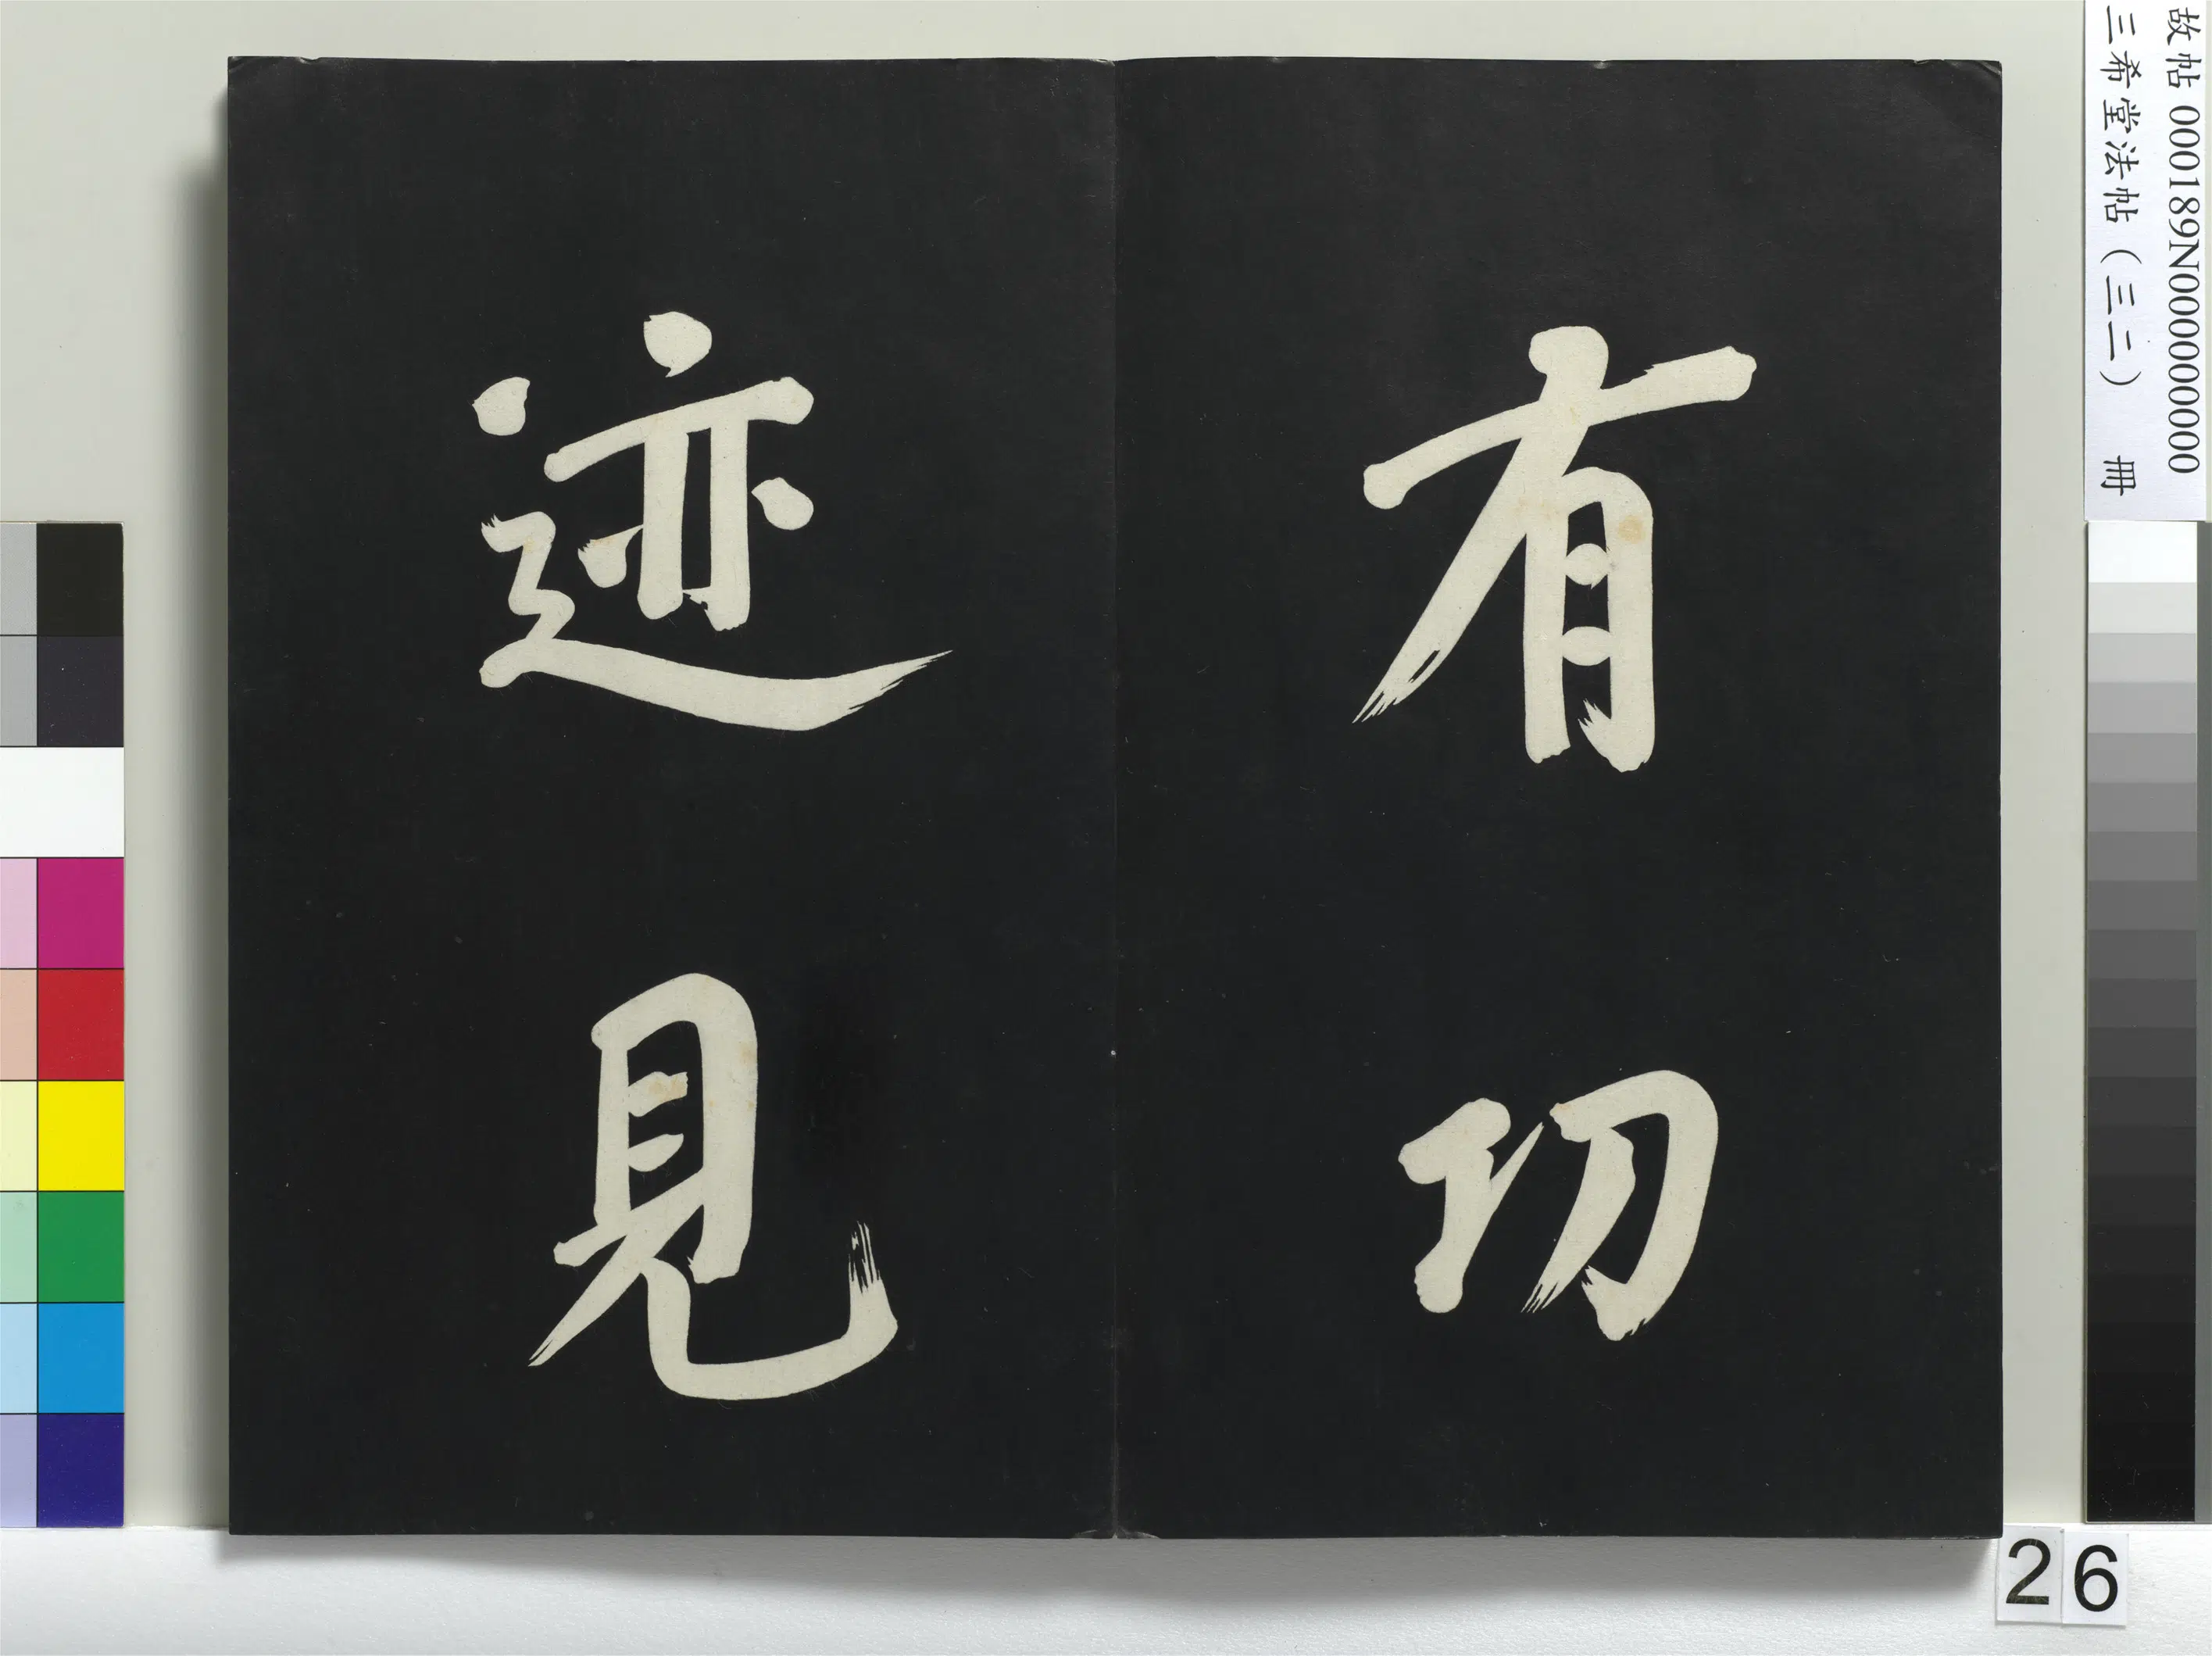 故帖 000189N000000000
三希堂法帖（三二） 冊
有功
迹見
26